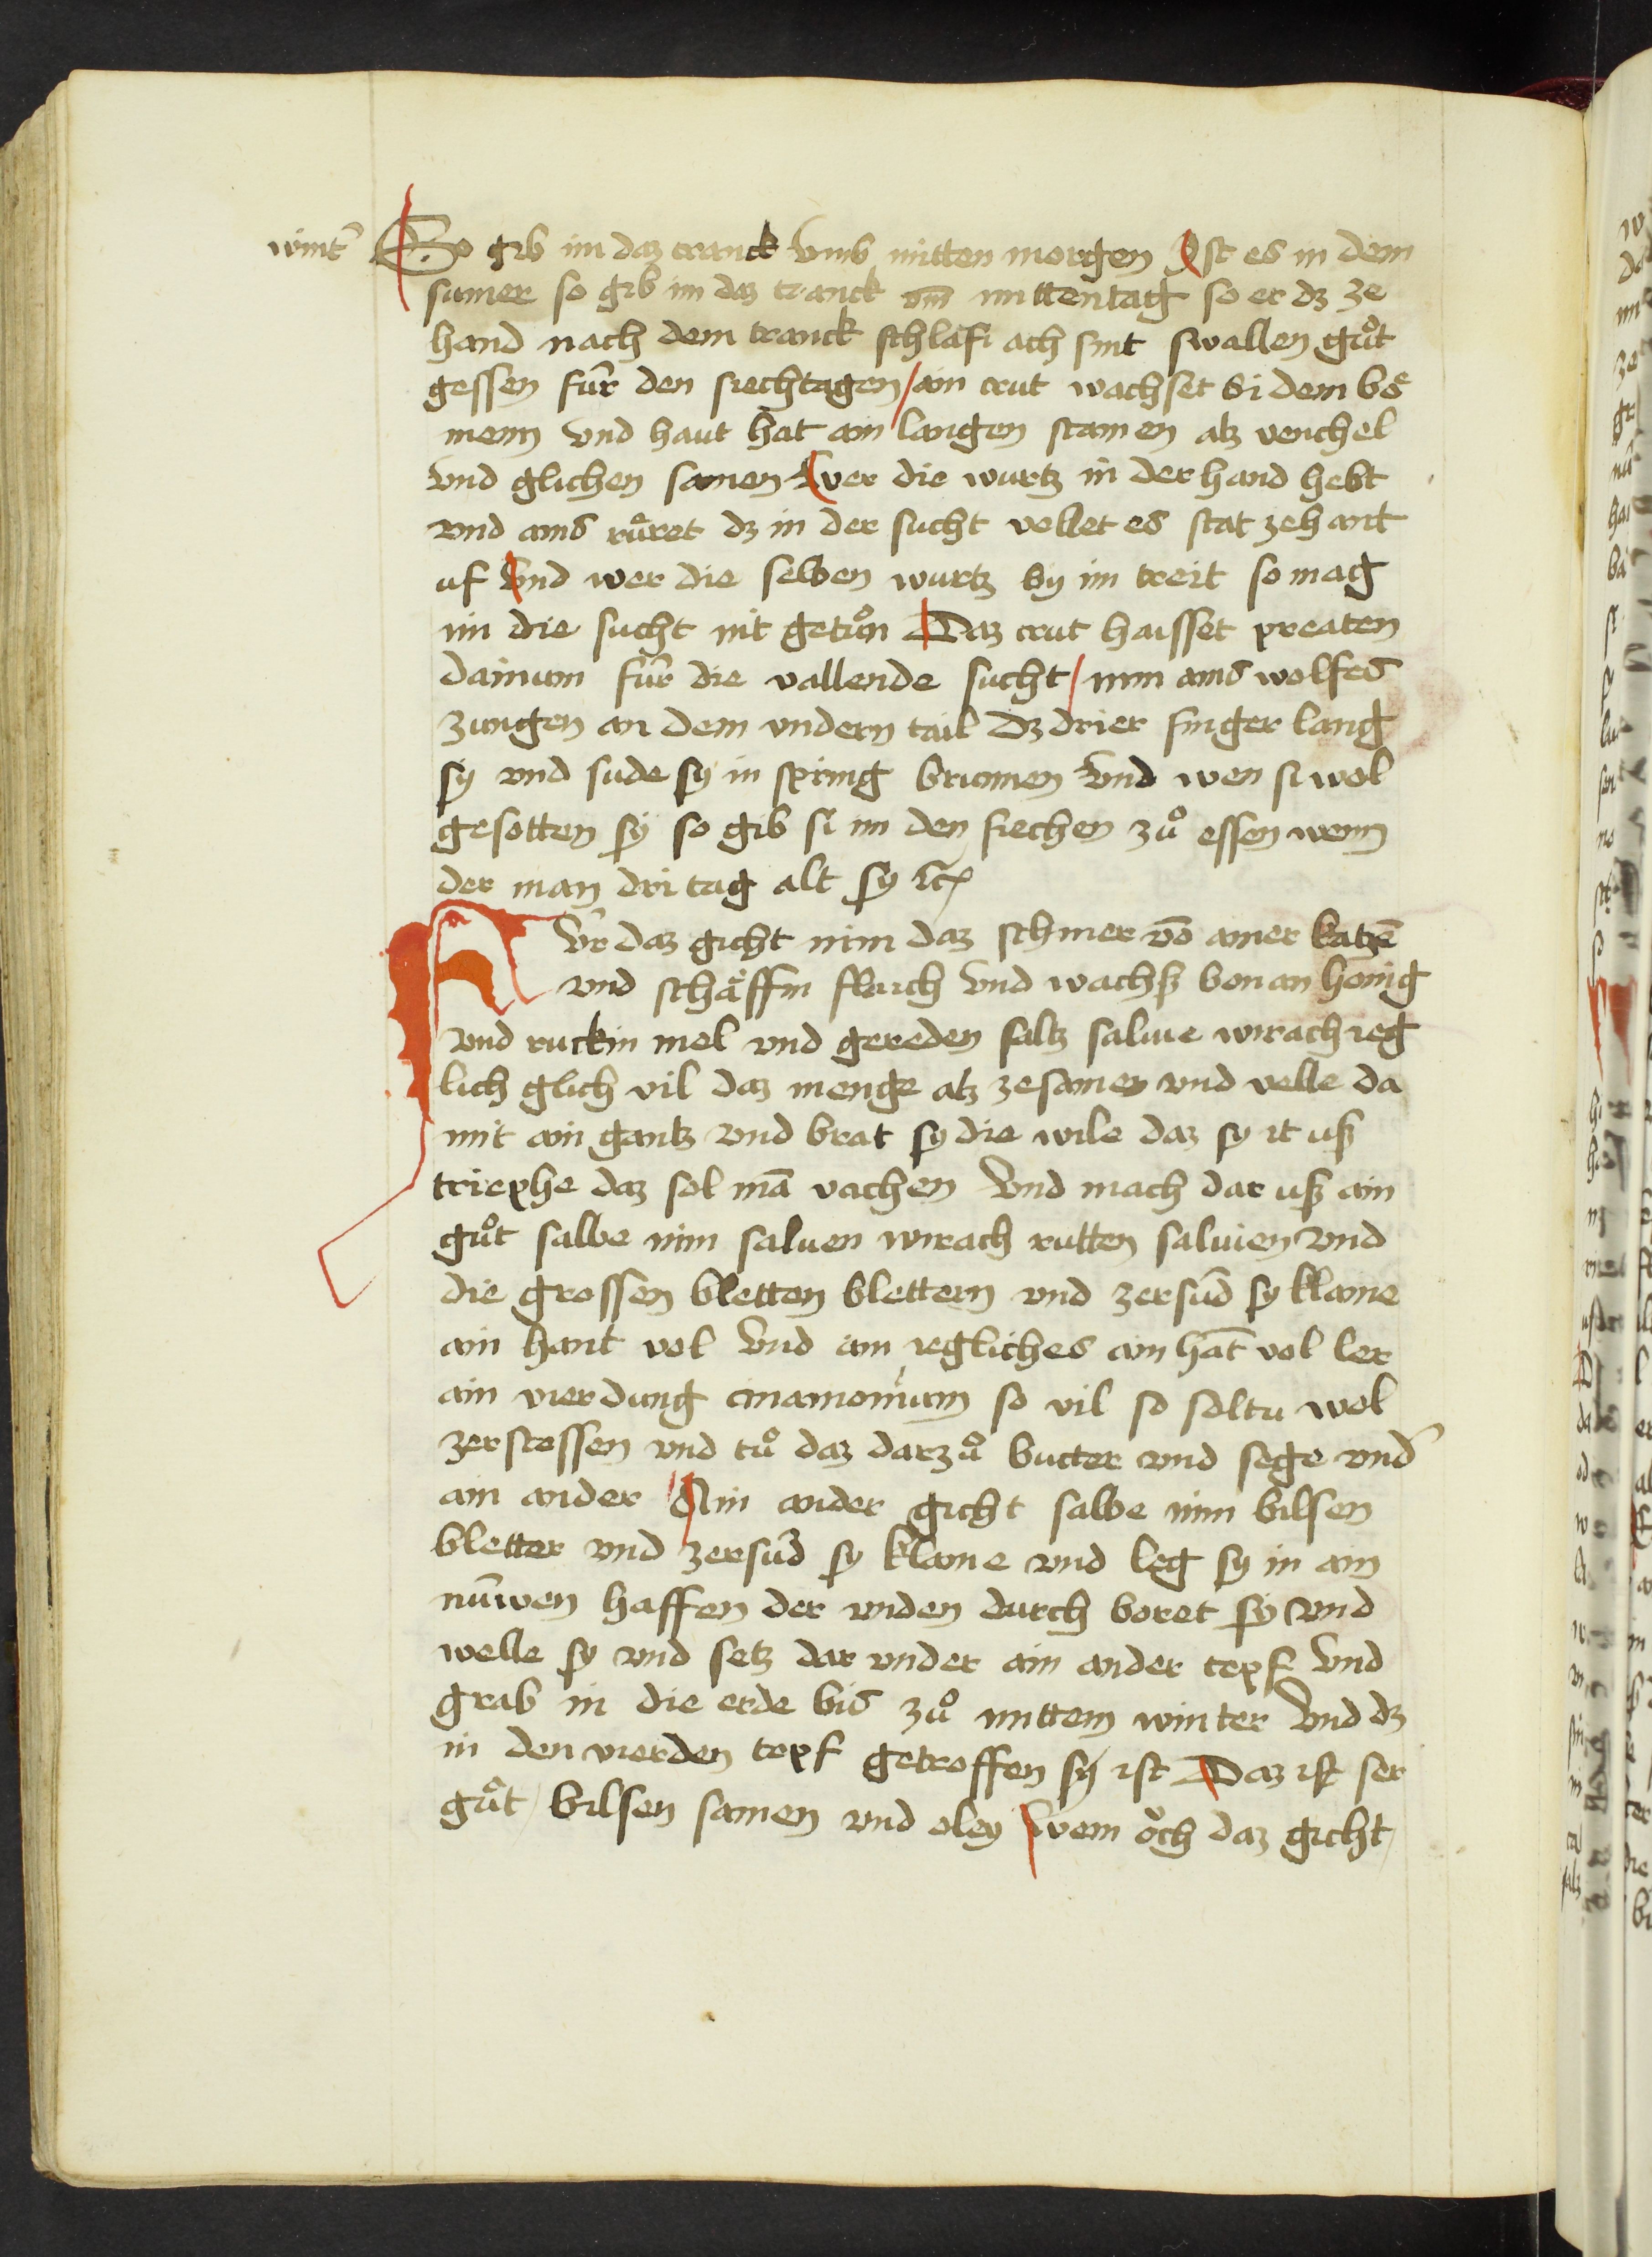 wint᷑ So gib im daz tranck vmb mitten morgen Ist es in dem
sumer so gib im daz tranck vm̄ mittentag so er dz ze
hand nach dem tranck schlaͤff ach sint swallen guͦt
gessen fuͤr den siechtagen / ain crut wachset bi dem boͤ
menn vnd haut hat ain langen stamen alz venchel
vnd glichen samen wer die wurtz in der hand hebt
vnd ains ruͤret dz in der sucht vellet es stat zehant
uf Vnd wer die selben wurtz by im treit so mag
im die sucht nit getuͦn Daz crut haisset preaten
dainum fuͤr die vallende sucht / nim ains wolfes
zungen an dem vndern tail dz drier finger lang
sy vnd sude sy in spring brunnen Vnd wen si wol
gesotten sy so gib si im den siechen zuͦ essen wenn
der man dri tag alt sy etc
Fuͤr daz gicht nim daz schmer vō ainer katzē
vnd schaͤffin flaich vnd wachß bonan honig
vnd ruckin mel vnd gereden saltz salvie wirach ieg
lich glich vil daz menge alz zesamen vnd velle da
mit ain gantz vnd brat sy die wile daz sy it uß
triephe daz sol mā vachen Vnd mach dar uß ain
guͦt salbe nim saluen wirach rutten saluien vnd
die grossen bletten blettern vnd zersuͤd sy klaine
ain hant vol Vnd ain iegliches ain hāt vol ler
ain vierdung cinamonium so vil so soltu wol
zerstossen vnd tuͦ daz darzuͦ butter vnd sege vnd᷑
ain ander Ain ander gicht salbe nim bilsen
bletter vnd zersuͤd sy klaine vnd leg sy in ain
nuͤwen haffen der vnden durch boret sy vnd
welle sy vnd setz dar vnder ain ander topf Vnd
grab in die erde bis zuͦ mittem winter Vnd dz
in den vierden topf getroffen sy ist Daz ist ser
guͦt / bilsen samen vnd oley Wem oͤch daz gicht